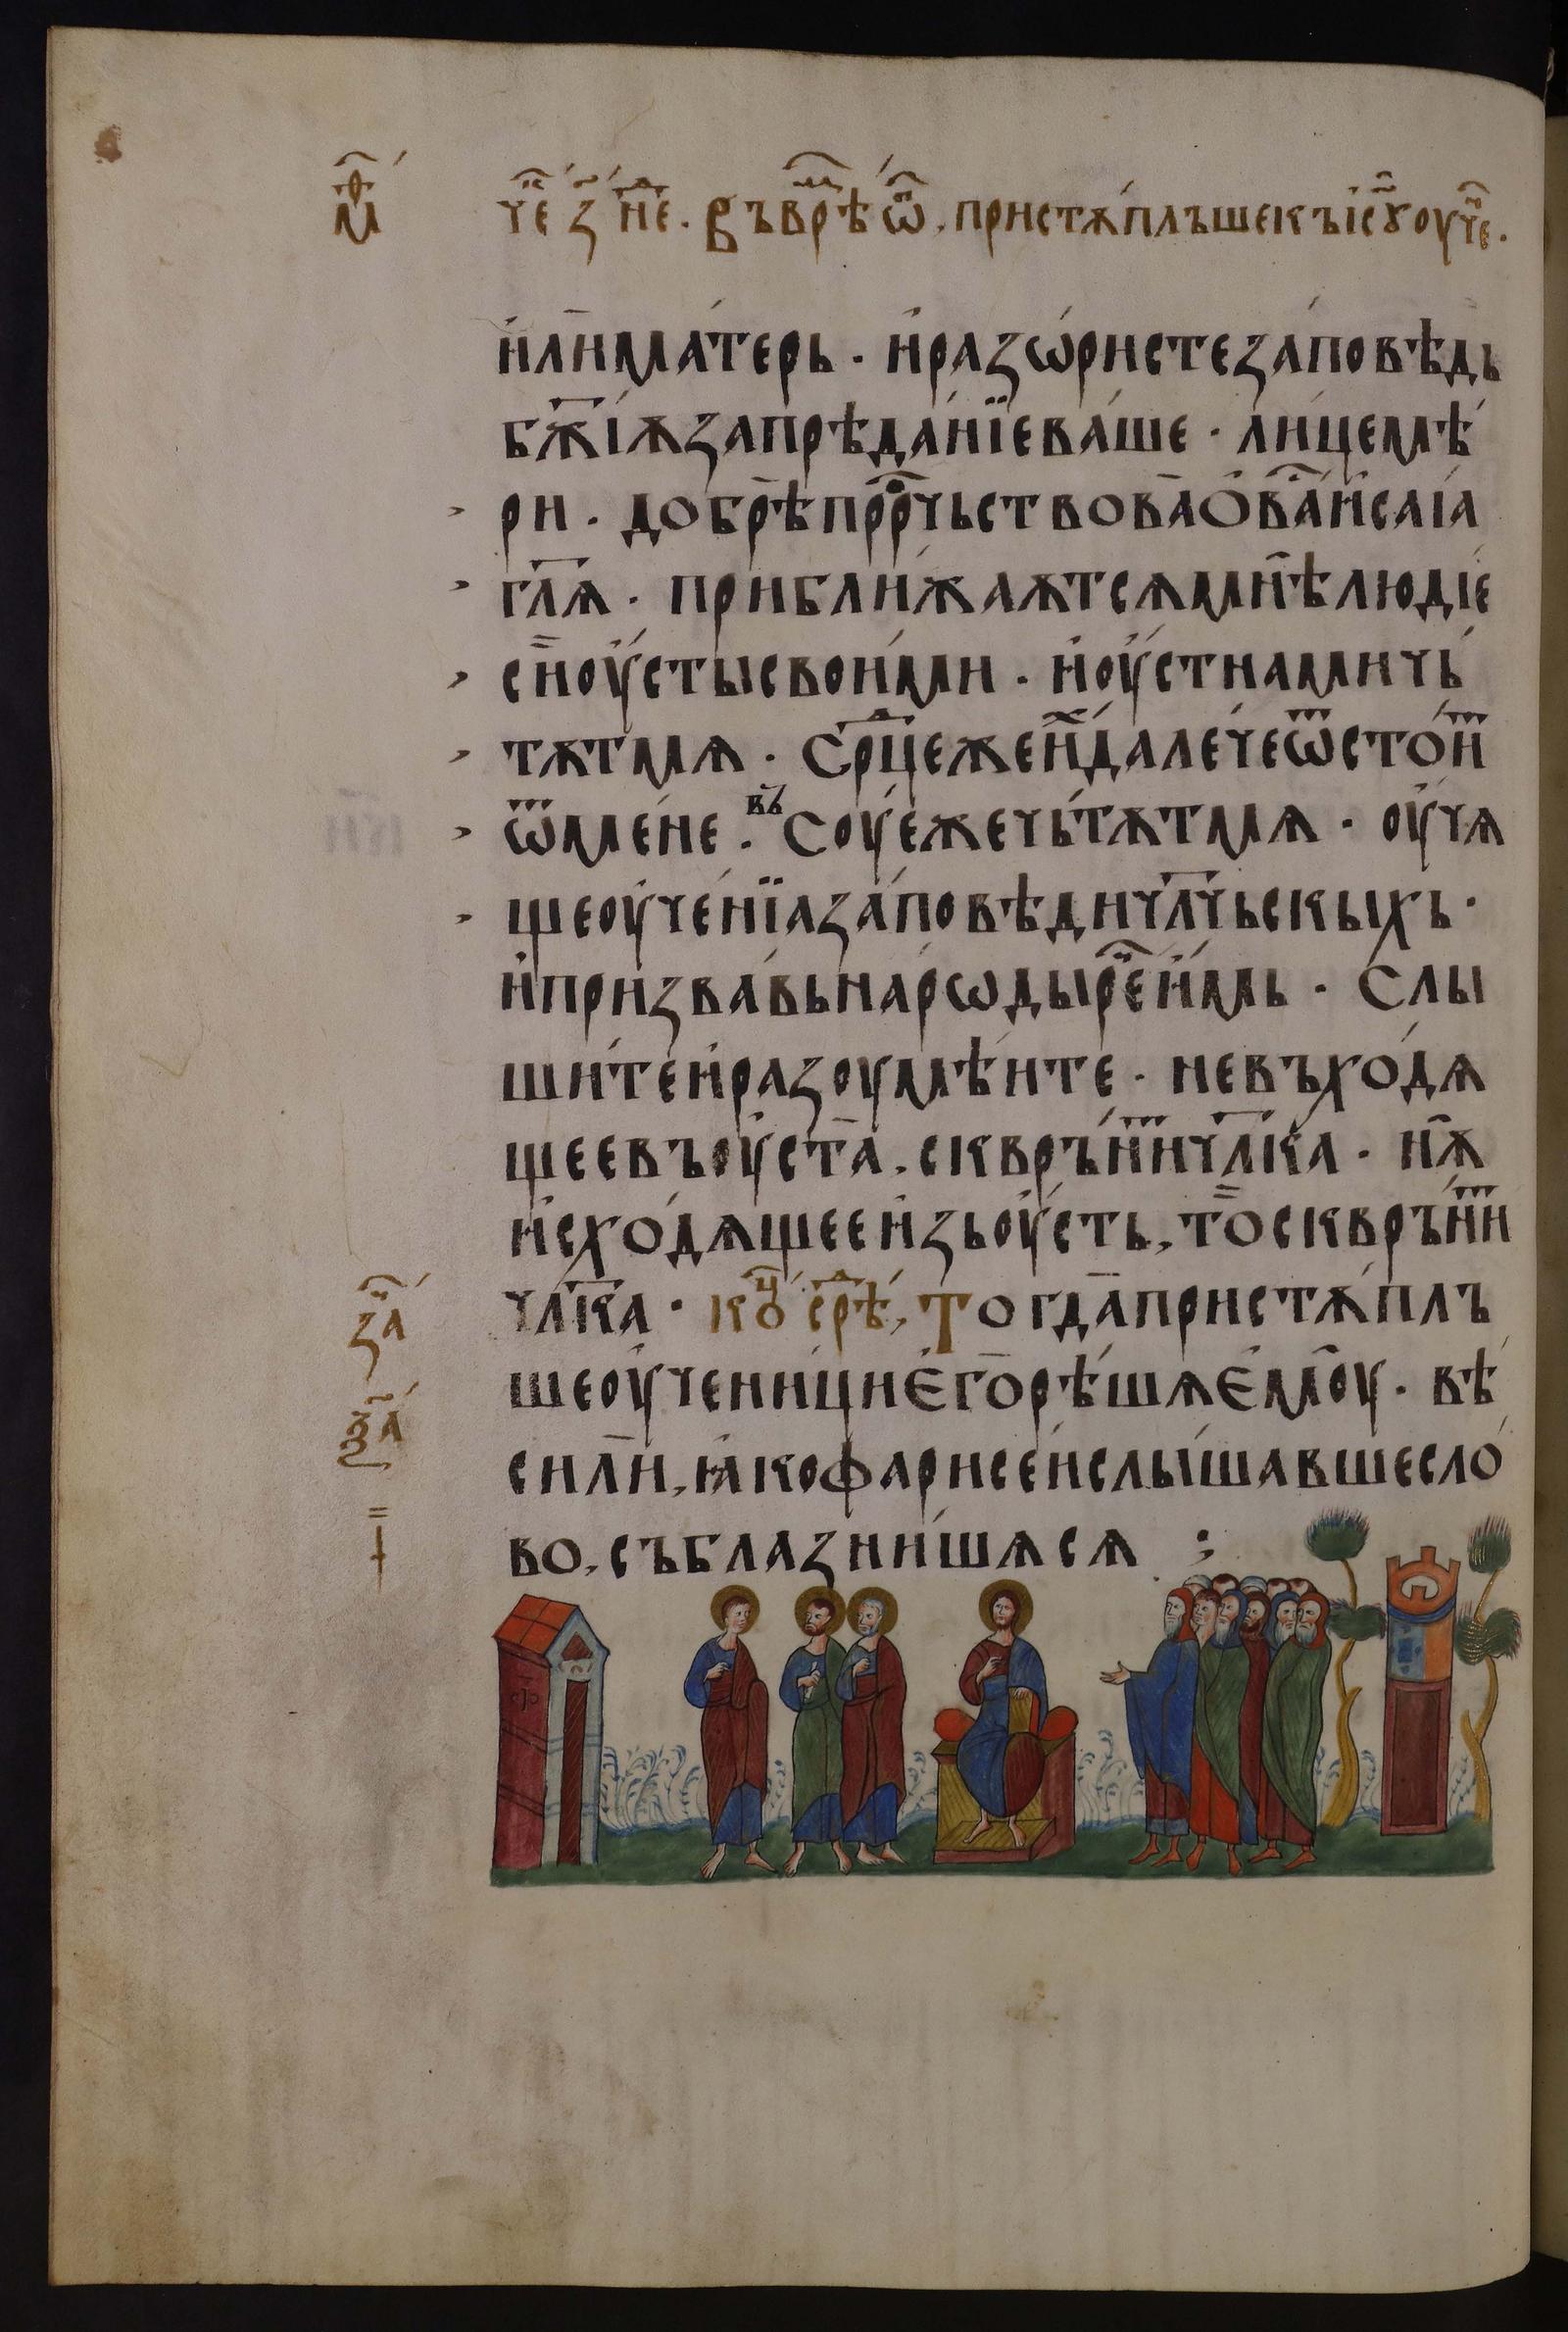 м҃ф
че҃ з҃ не҃д. Въ врѣ҃м ѡ҃н, пристѫ́плъше къ іс҃ѹ ѹч҃е.
и҆лѝ ма́терь · и҆ разѡ́ристе за́повѣдь
бж҃їѧ за прѣда́нїе ва́ше · ли́цемѣ́
ри · добрѣ̀ прⷪ҇рчьствова̀ ѡ҆ ва́с и҆саі́а
гл҃ѧ · прибли́жаѫтсѧ мнѣ̀ людїе
си̏ оу҆сты свои́ми · и҆ оу҆стнами чь́
тѫтмѧ · Ср҃це же и҆́х дале́че ѿстои́т
ѿ мене · въ Сѹ́е же чь́тѫтмѧ · оу҆чѧ
ще оу҆че́нїа за́повѣди чл҃чьскыхь ·
и҆ призва́вь на́рѡды реч҃е и҆́мь · Слы
ши́те и҆ разоумѣ́ите · не въхо́дѧ
щее въ оу҆ста̀, скврънит чл҃ка · нѫ̀
и҆схо́дѧщее и҆зь оу҆сть, то̏ сквръни́т
чл҃ка · ко҃ц ср҃ѣд, Тогда̀ пристѫ́плъ
за҃ч
ше оу҆чени́ци е҆го̀ рѣ́шѧ е҆моу̀ · вѣ́
ѯ҃а
си лѝ, ꙗ҆ко фарисе́и слы́шавше сло́
во, съблазни́шѧсѧ :